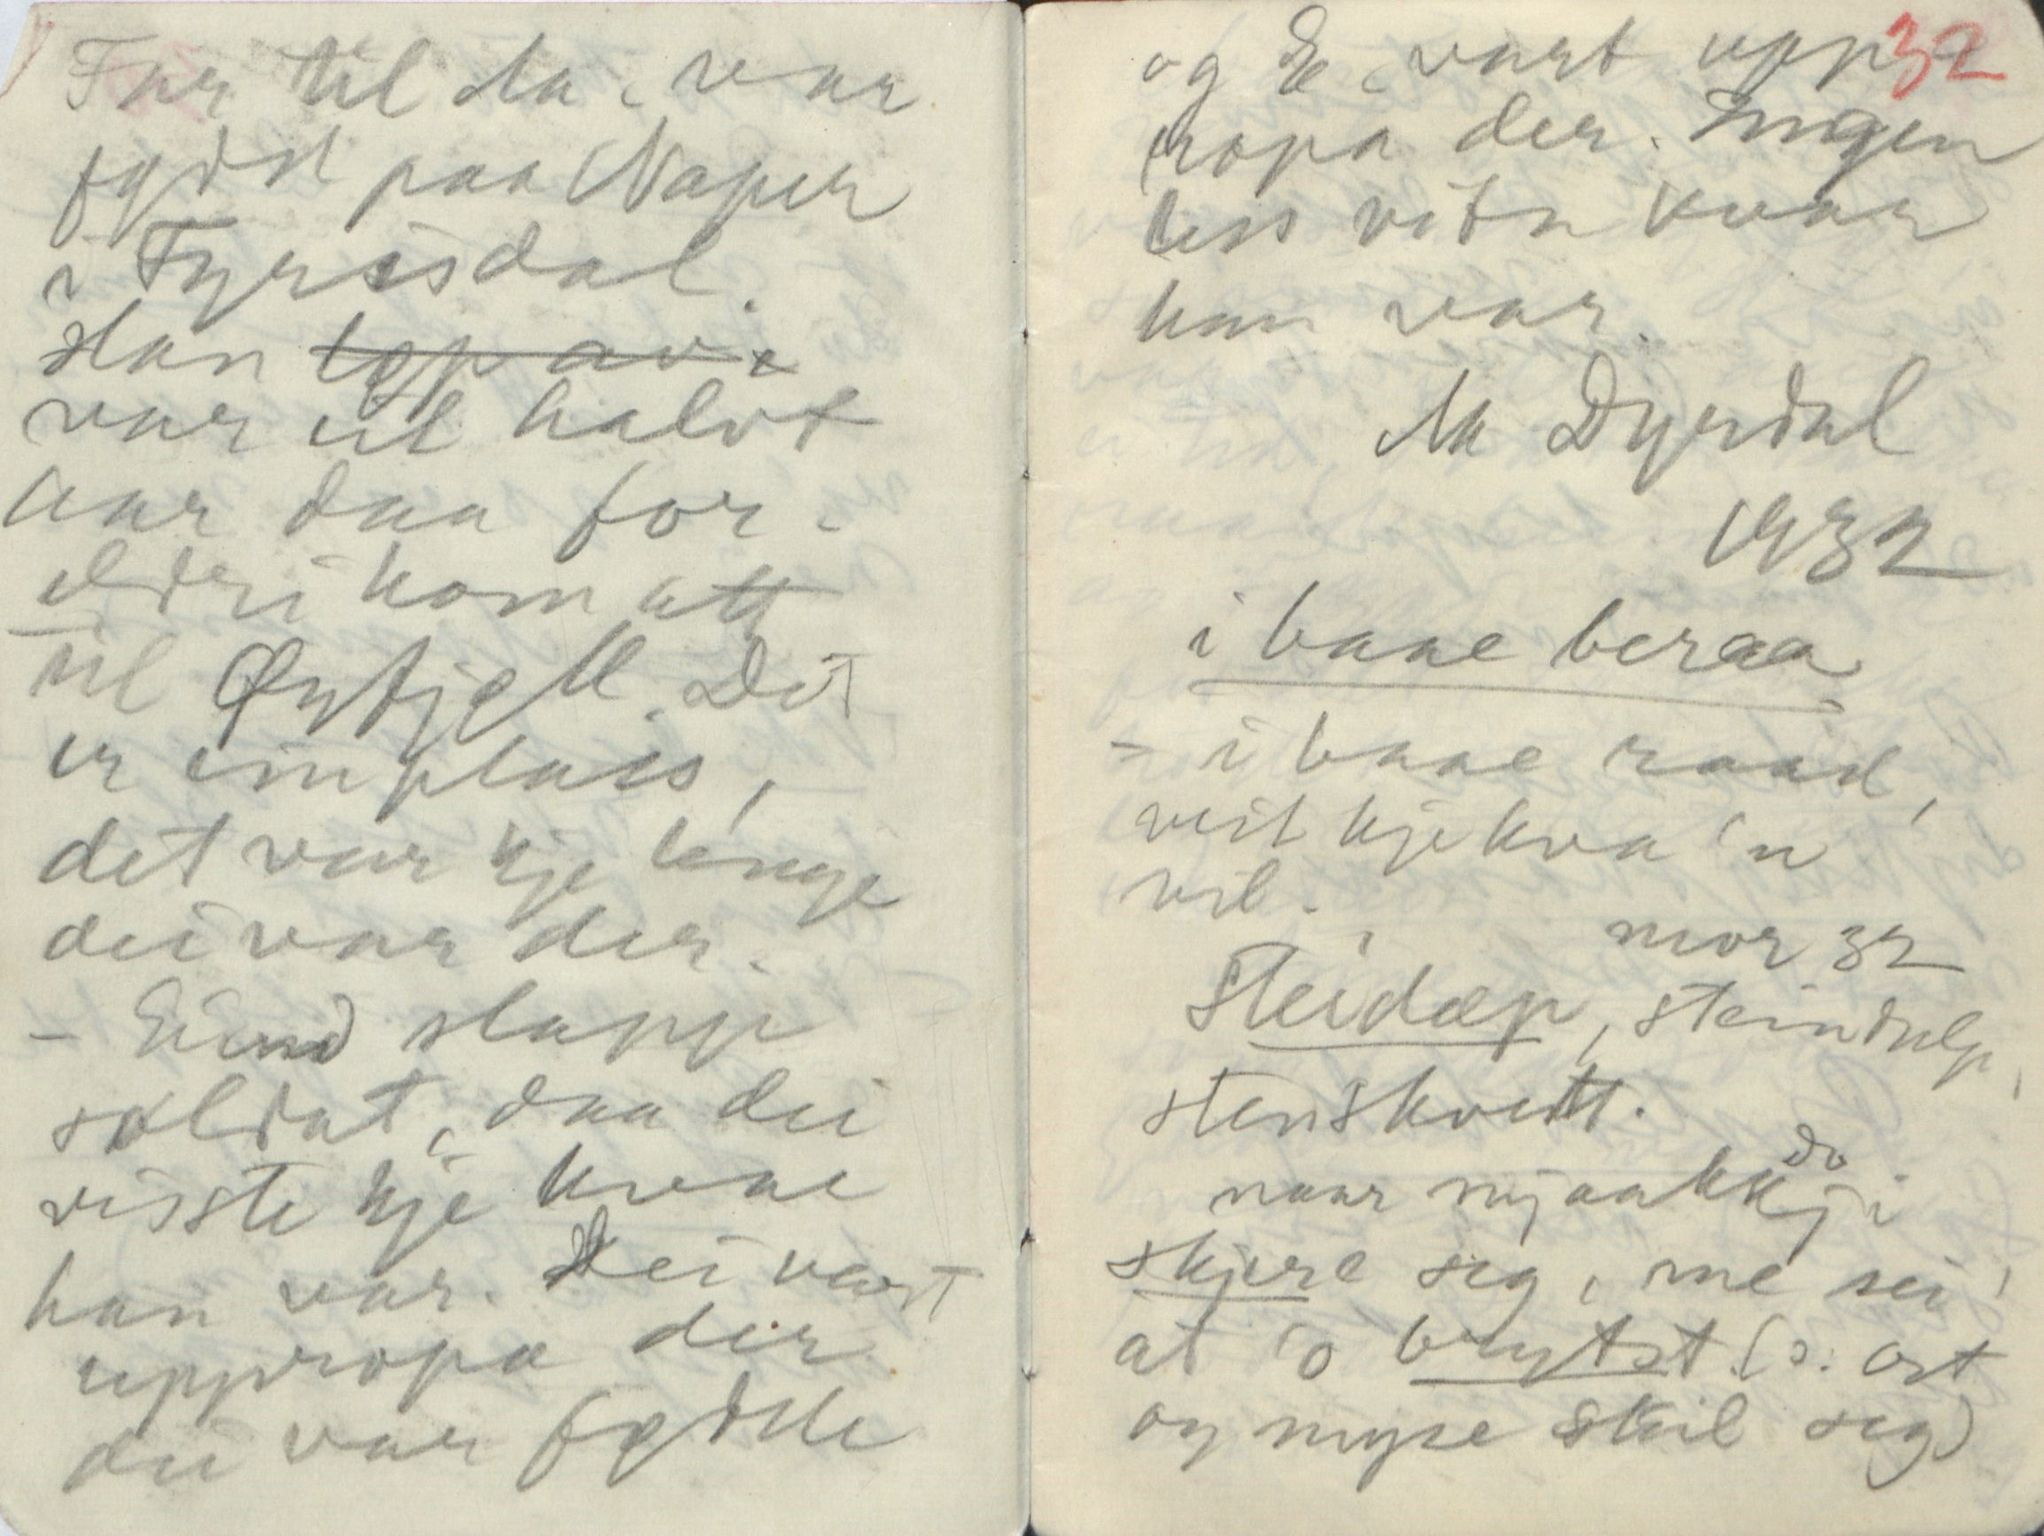 Far til Aa. var
fødd paa Naper
i Fyrisdal.
Han løp av
var eit halvt
aar daa for-
eldri kom att
til Øyfjell. Det
er ein plass,
det var kje lenge
dei var der.
- Eivind slapp
soldat, daa dei
visste kje kvae
han var. Dei vart
uppropa der
dei var fødde
32
og E. vart upp
ropa der. Ingen
less vita kvar
han var.
Aa Dyrdal
1932
i baae beraa
= i baae raad,
veit kje kva 'n
vil.
mor 32
Steidøp, steindulp,
stenskvett.
naar mjaakkji
skjere seg, me sei
at 'o brytst (ɔ: ost
og myse skil seg)